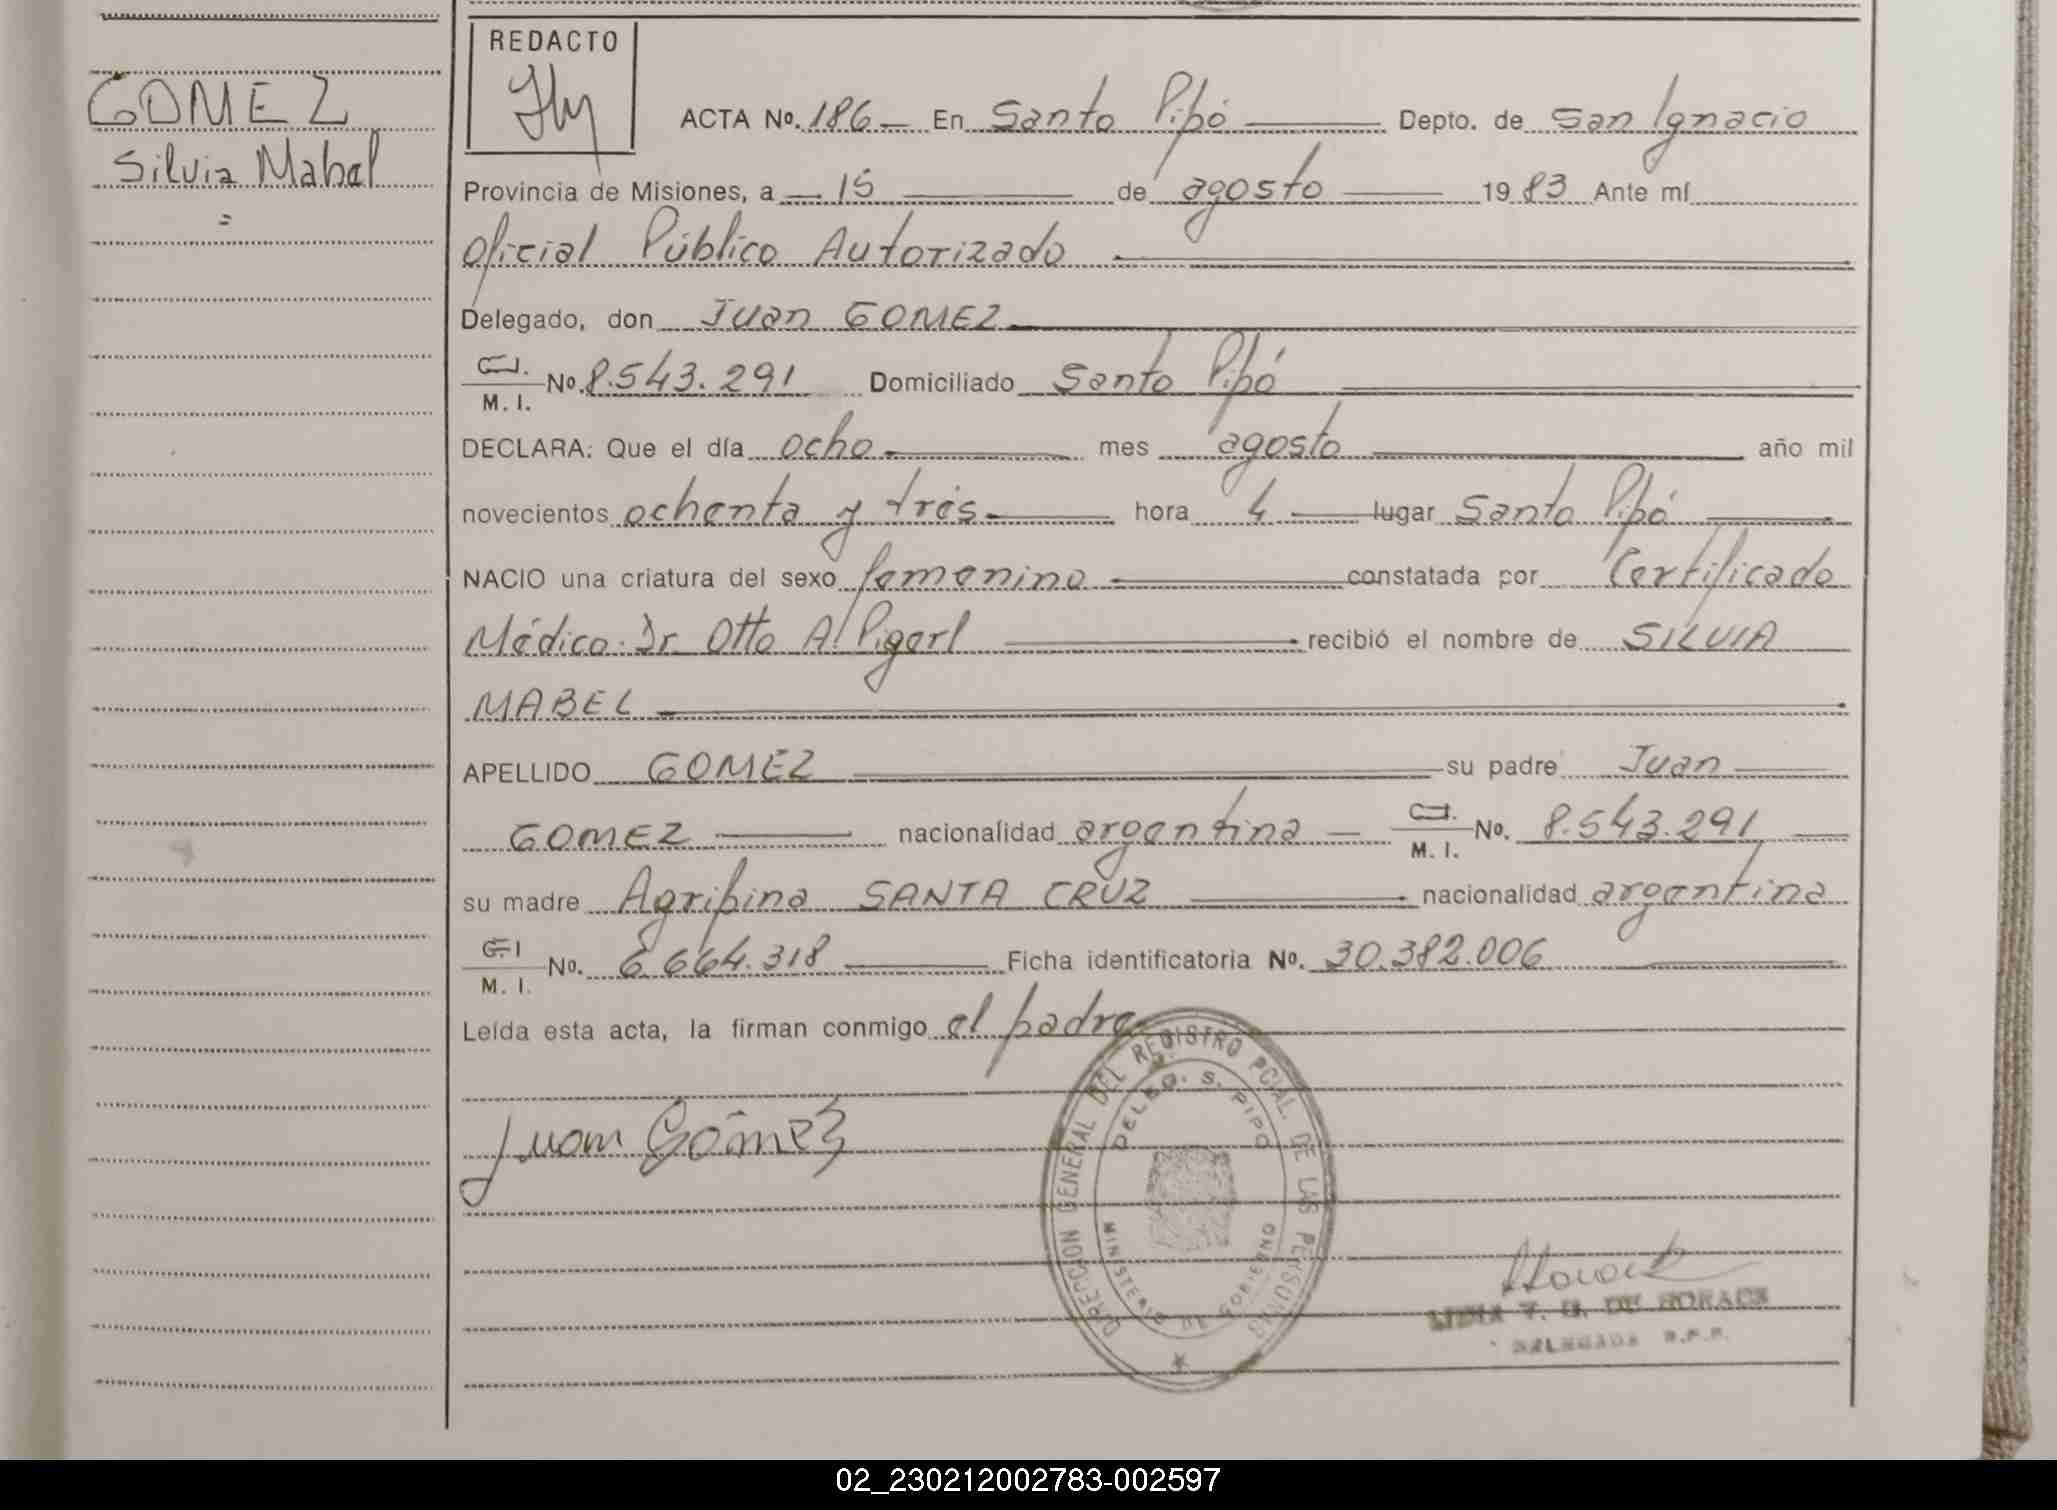 GOMEZ
Silvia Mabel
=
REDACTO
ACTA No. 186 — En Santo Pipó — Depto. de San Ignacio
Provincia de Misiones, a — 15 — de agosto — 1983 Ante mí
Oficial Público Autorizado
Delegado, don Juan GOMEZ
C.I.
M. I. No. 8.543.291 Domiciliado Santo Pipó
DECLARA: Que el día ocho mes agosto año mil
novecientos ochenta y trés hora 4 lugar Santo Pipó
NACIO una criatura del sexo femenino constatada por Certificado
Médico. Dr. Otto A. Pigerl recibió el nombre de SILVIA
MABEL
APELLIDO GOMEZ su padre Juan
GOMEZ nacionalidad argentina — C.I.
M. I. No. 8.543.291
su madre Agripina SANTA CRUZ nacionalidad argentina
C.I.
M. I. No. 6.664.318 Ficha identificatoria No. 30.382.006
Leída esta acta, la firman conmigo el padre
Juan Gómez
DIRECCION GENERAL DEL REGISTRO PCIAL. DE LAS PERSONAS
DELEG. S. PIPO
MINISTERIO DE GOBIERNO
DELEGADA R.P.P.
02_230212002783-002597